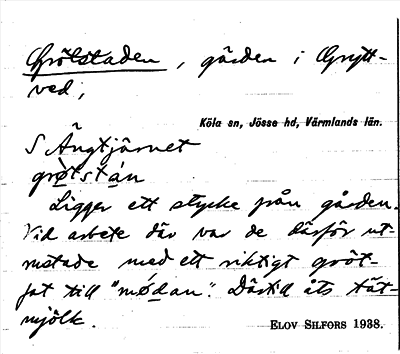 Grötstaden, gården i Grytt-
ved,
Köla sn, Jösse hd, Värmlands län.
S Ängtjärnet
grøtstán
Ligger ett stycke från gården.
Vid arbete där var de därför ut-
rustade med ett riktigt gröt-
fat till "mødan". Därtill åts tät-
mjölk.
ELOV SILFORS 1938.